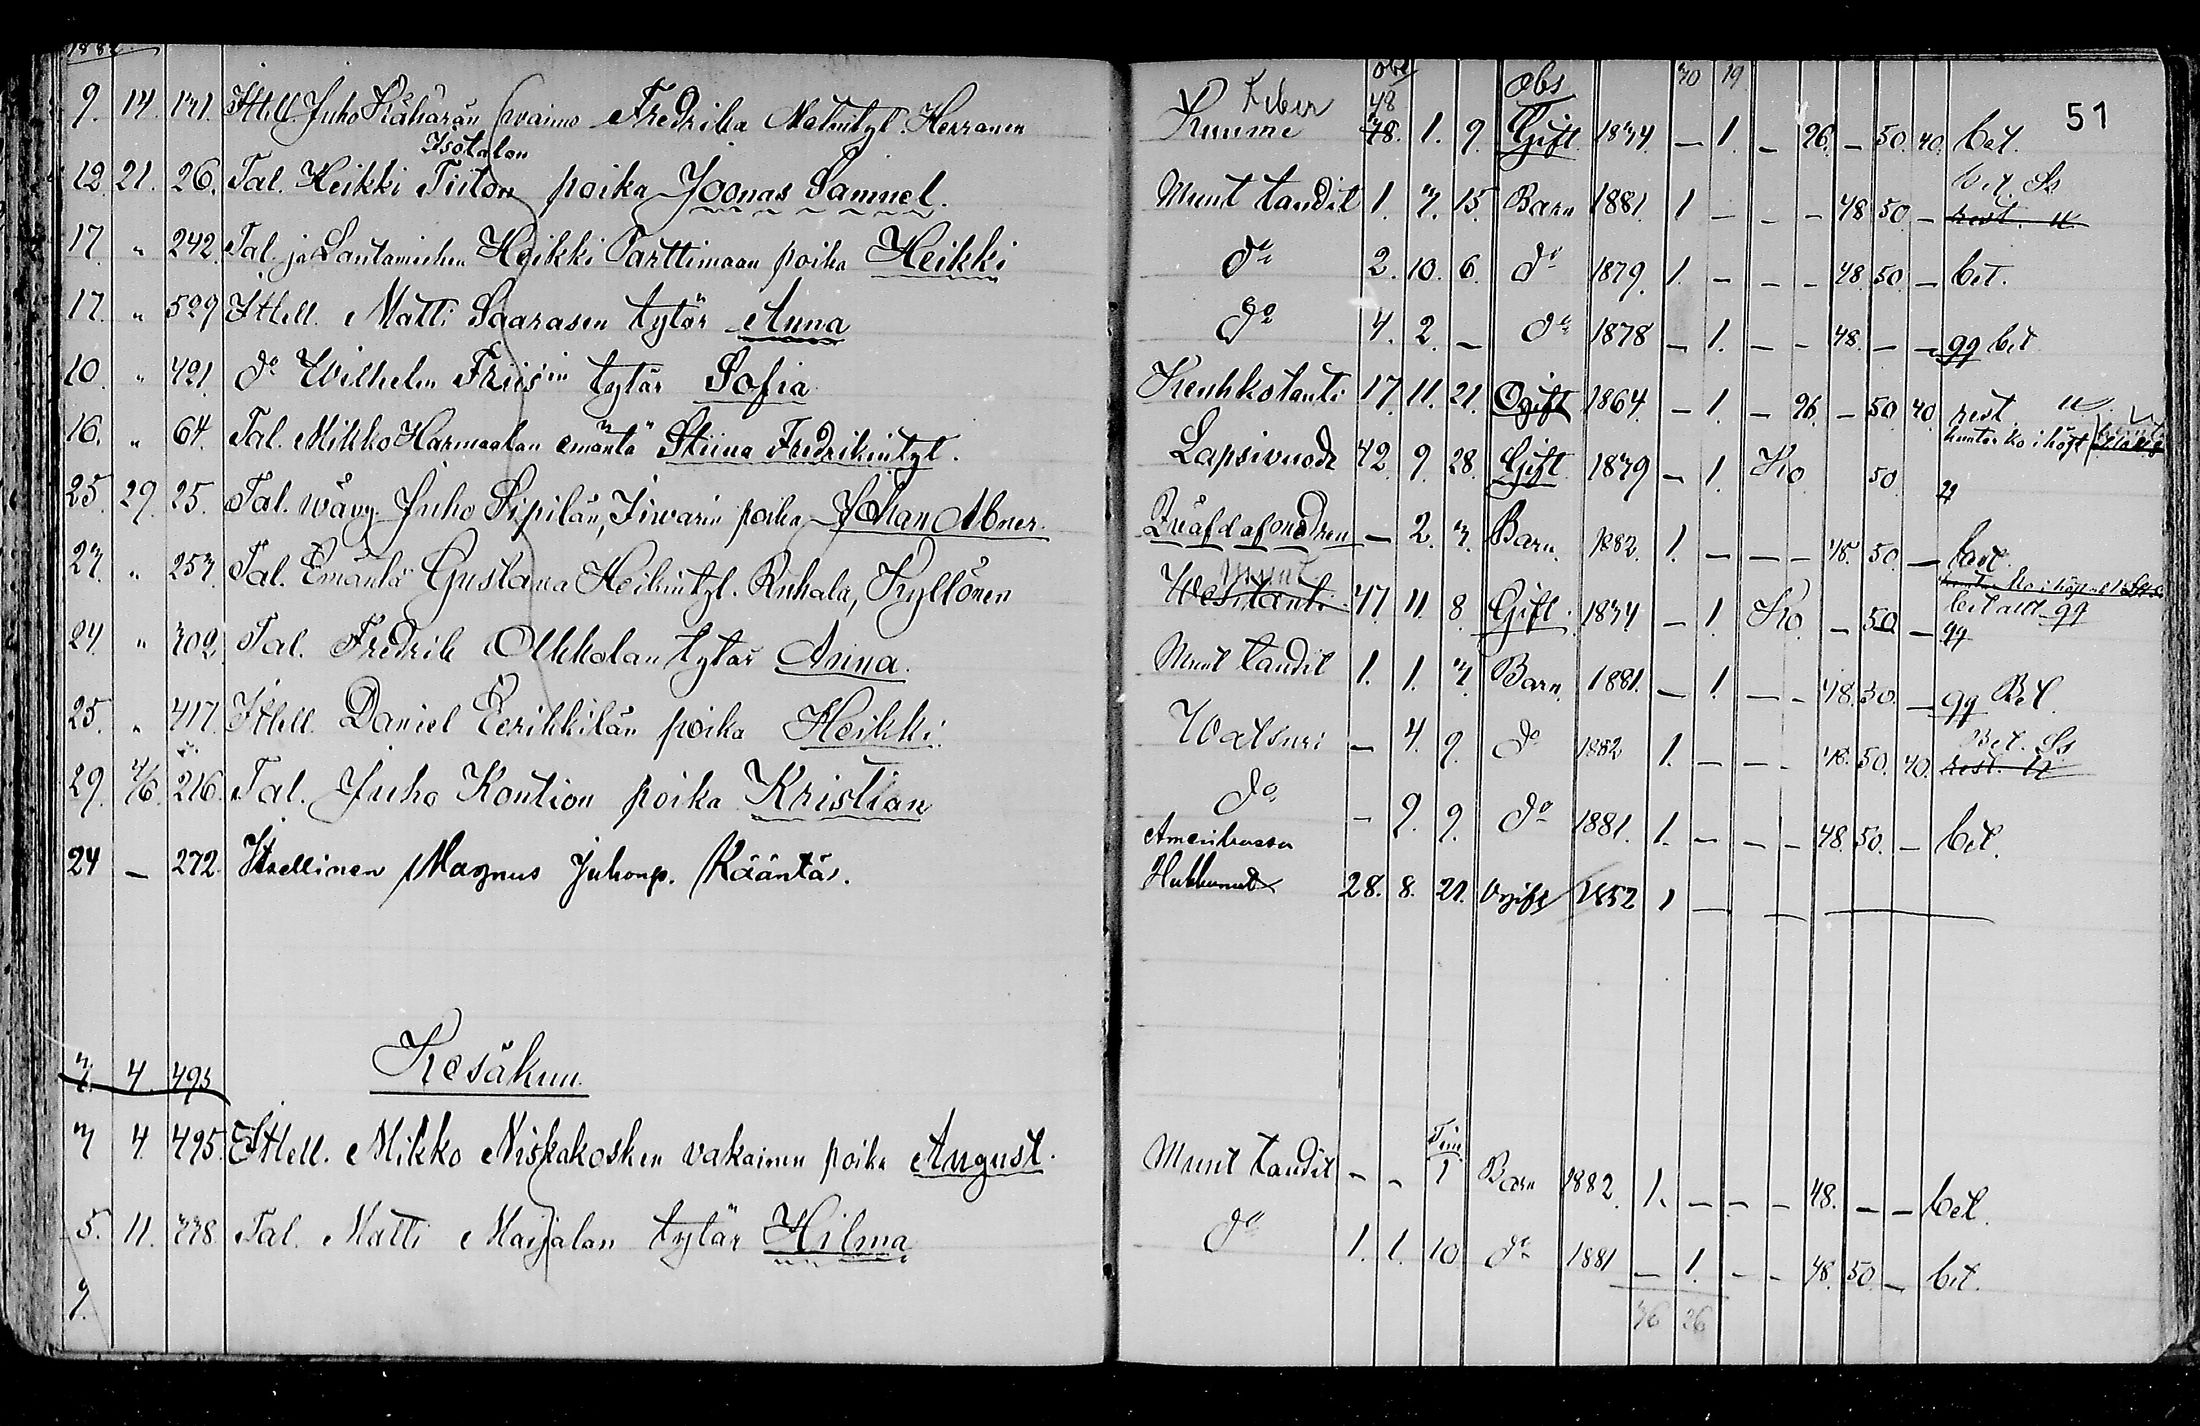 1882
Obs Obs 30 19
Feber 48
9. 14. 131. Itsell. Juho Kähärän vaimo Fredrika Matintyt. Herranen Kuume 48. 1. 9. Gift 1834 — 1. — 96. — 50. 40. bet. 51
Isotalon
bet. Ss
12. 21. 26. Tal. Heikki Tiiton poika Joonas Samuel. Munt taudit 1. 3. 15. Barn 1881. 1 — — — 48 50 — rest. u.
17. „ 242. Tal. ja Lautamiehen Heikki Parttimaan poika Heikki do 2. 10. 6. do 1879. 1. — — — 48. 50. — bet.
17. „ 529 Itsell. Matti Saarasen tytär Anna do 4. 2. — do 1878 — 1. — — 48. — — gg bet
10. „ 421 do Wilhelm Friis'in tytär Sofia Keuhkotauti 17. 11. 21. Ogift 1864 — 1. — 96. — 50. 40. rest u
16. „ 64. Tal. Mikko Harmaalan emäntä Stiina Fredrikintyt. Lapsivuode 42. 9. 28. Gift 1839 — 1. Ko 50.
25. 29. 25. Tal. wävy Juho Sipilän, Iiwarin poika Johan Abner. Qväfd af modren — 2. 3. Barn. 1882. 1. — — — 48. 50. — bet.
Munt
27. „ 253. Tal. Emäntä Gustava Heikintyt. Ruhala, Kyllönen Wesitauti 47. 11. 8. Gift. 1834 — 1. Ko. — 50. — gg
24. „ 302. Tal. Fredrik Akkolan tytär Anna. Munt taudit 1. 1. 3. Barn. 1881. — 1. — — 48. 50. — gg Bet.
Bet. Ss
25. „ 417. Itsell. Daniel Eerikkilän poika Heikki. Watsuri — 4. 9. do 1882 1. — — — 48. 50. 40. rest. u
29. 4/6. 216. Tal. Juho Kontion poika Kristian do — 9. 9. do 1881. 1. — — — 48. 50. — bet.
24 — 272. Itsellinen Magnus Juhonp. Kääntäs. Amerikassa
Hukkunut 28. 8. 21. Ogift 1852 1 — — —
3. 4. 495 Kesäkuu.
Tim
3 4. 495. Itsell. Mikko Niskakosken vakainen poika August. Munt taudit — — 1 Barn 1882. 1. — — — 48. — — bet.
5. 11. 338 Tal. Matti Maijalan tytär Hilma do 1. 1. 10 do 1881 — 1. — — 48. 50. — bet.
9. 36 26